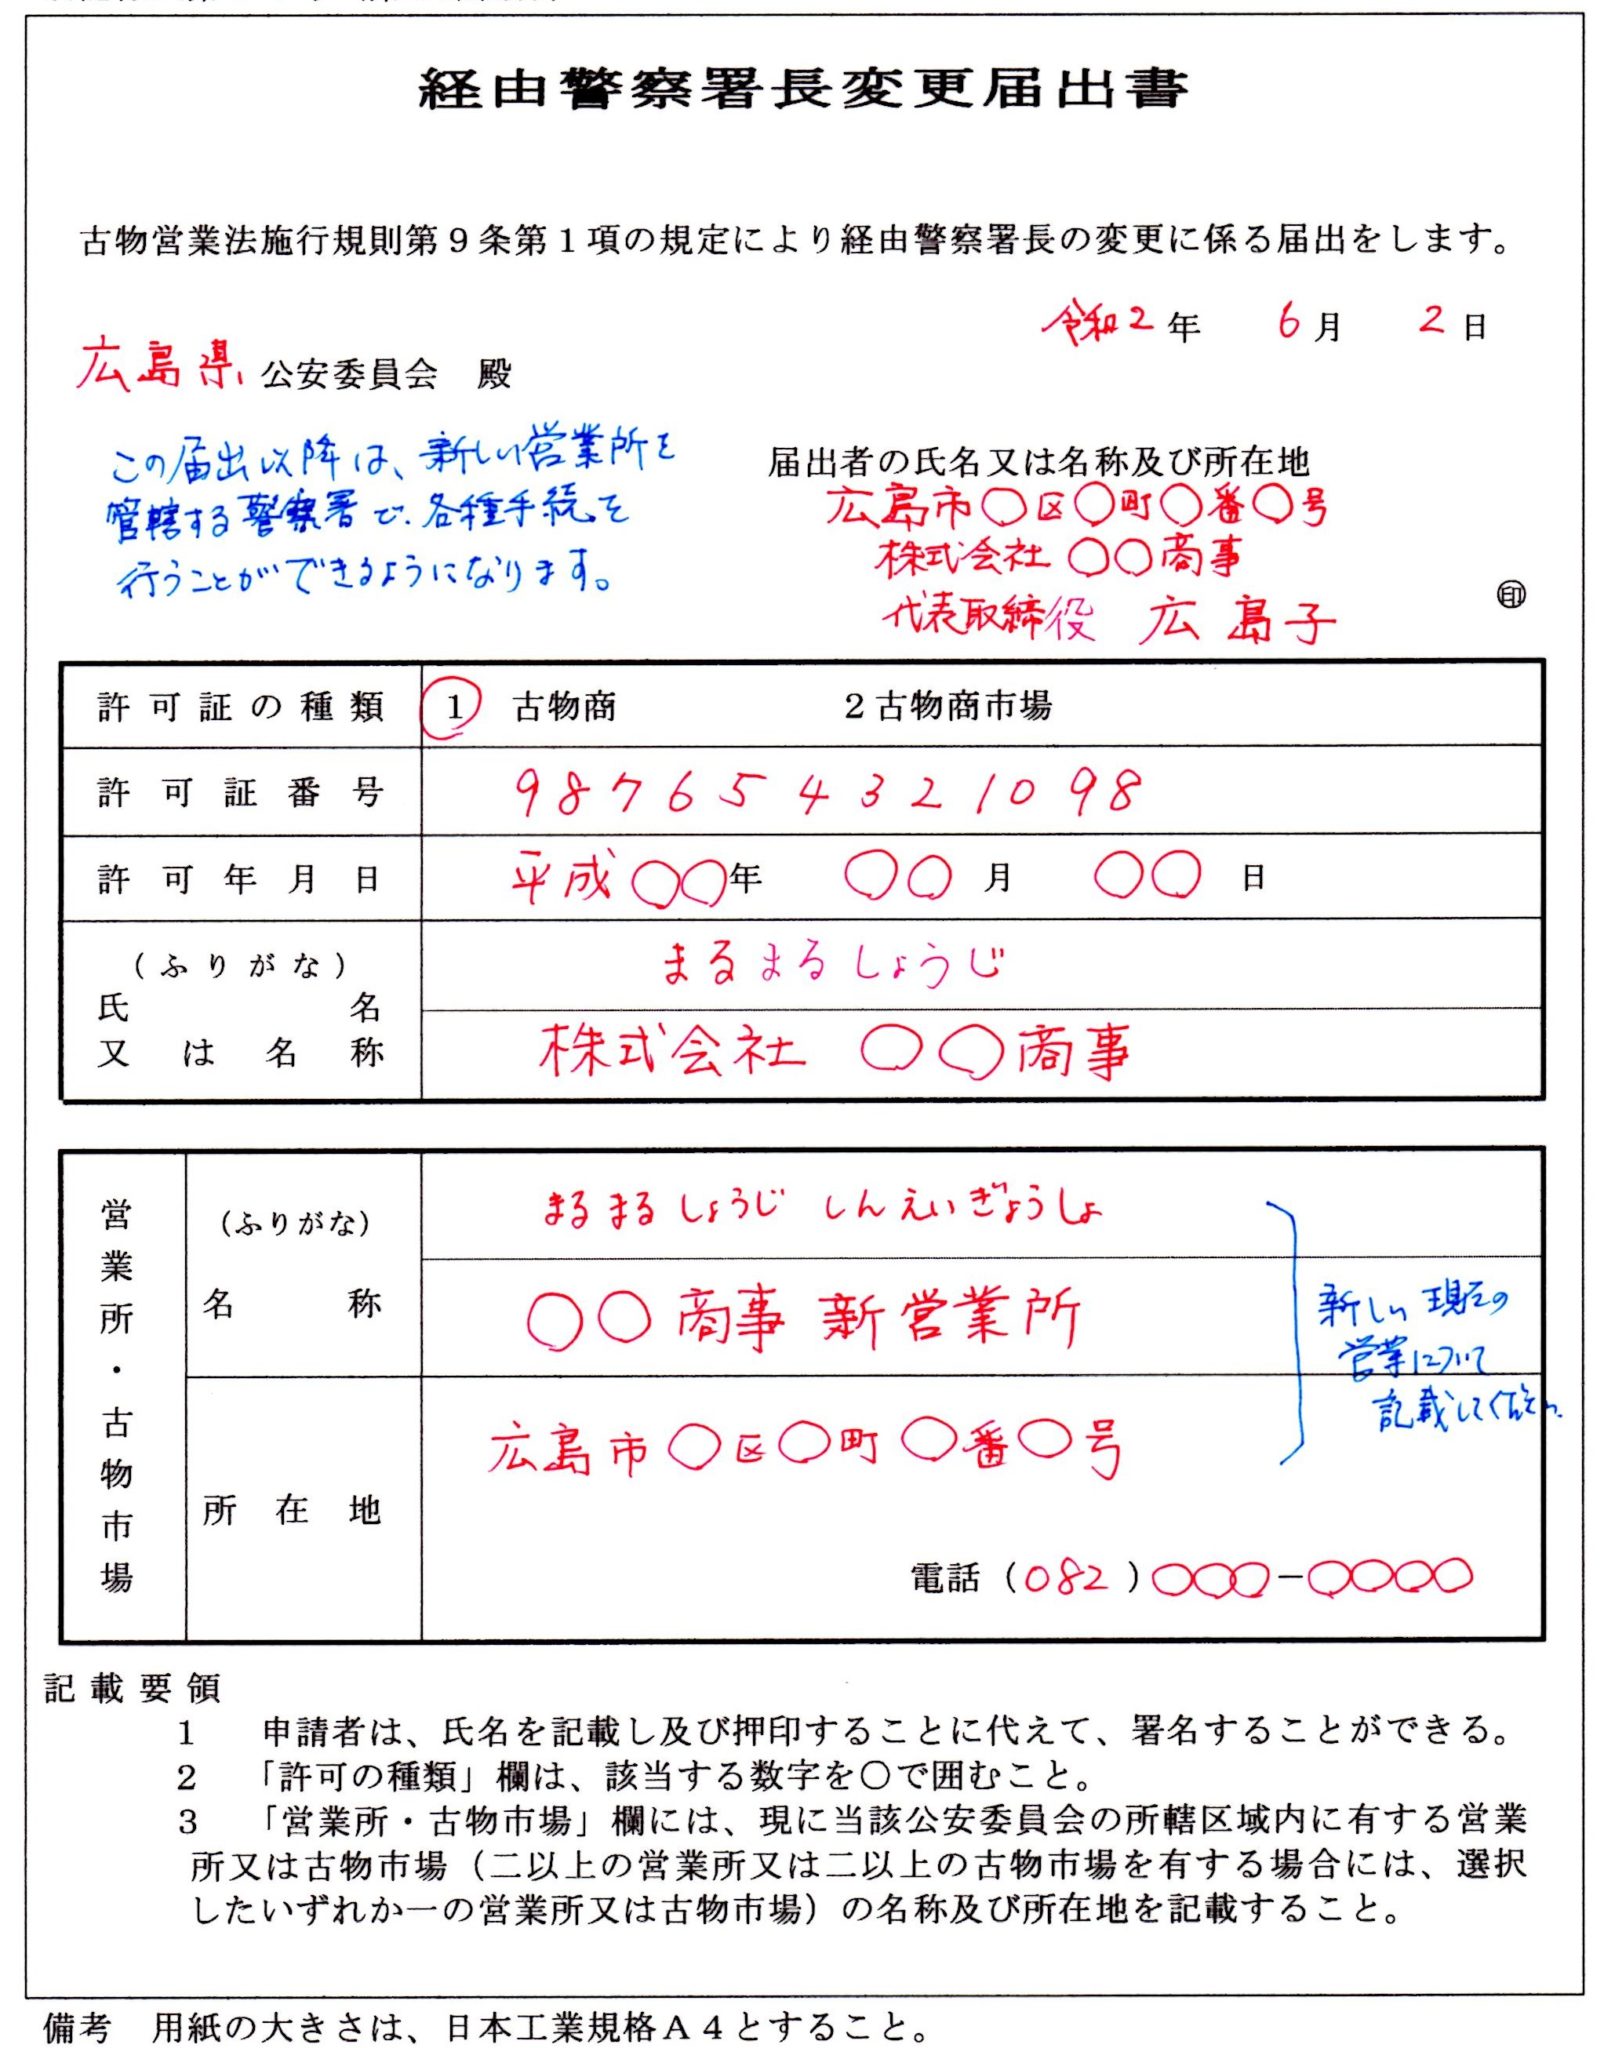 経由警察署長変更届出書
古物営業法施行規則第9条第1項の規定により経由警察署長の変更に係る届出をします。
令和2年 6月 2日
広島県 公安委員会 殿
この届出以降は、新しい営業所を
管轄する警察署で、各種手続を
行うことができるようになります。
届出者の氏名又は名称及び所在地
広島市〇区〇町〇番〇号
株式会社 〇〇商事
代表取締役 広 島子
㊞
許可証の種類 1 古物商 2古物商市場
許可証番号 987654321098
許可年月日 平成〇〇年 〇〇月 〇〇日
(ふりがな) まるまるしょうじ
氏名
又は名称 株式会社 〇〇商事
営業所・古物市場
(ふりがな) まるまるしょうじ しんえいぎょうしょ
名称 〇〇商事 新営業所
新しい現在の
営業について
記載してください。
所在地 広島市〇区〇町〇番〇号
電話(082)〇〇〇-〇〇〇〇
記載要領
1 申請者は、氏名を記載し及び押印することに代えて、署名することができる。
2 「許可の種類」欄は、該当する数字を〇で囲むこと。
3 「営業所・古物市場」欄には、現に当該公安委員会の所轄区域内に有する営業
所又は古物市場(二以上の営業所又は二以上の古物市場を有する場合には、選択
したいずれか一の営業所又は古物市場)の名称及び所在地を記載すること。
備考 用紙の大きさは、日本工業規格A4とすること。